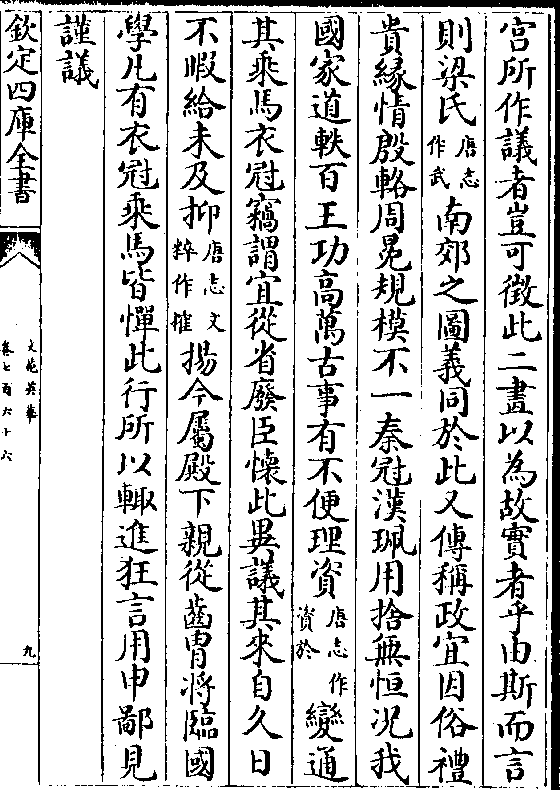 宫所作議者豈可徵此二畫以為故實者乎由斯而言
則梁氏唐志作武南郊之圖義同於此又傳稱政宜因俗禮
貴緣情殷輅周冕規模不一秦冠漢珮用捨無恒况我
國家道軼百王功高萬古事有不便理資唐志作資於變通
其乘馬衣冠竊謂宜從省廢臣懷此異議其來自久日
不暇給未及抑唐志文粹作搉揚今屬殿下親從齒胄將臨國
學凡有衣冠乘馬皆憚此行所以輙進狂言用申鄙見
謹議
欽定四庫全書
文苑英華
卷七百六十六
九